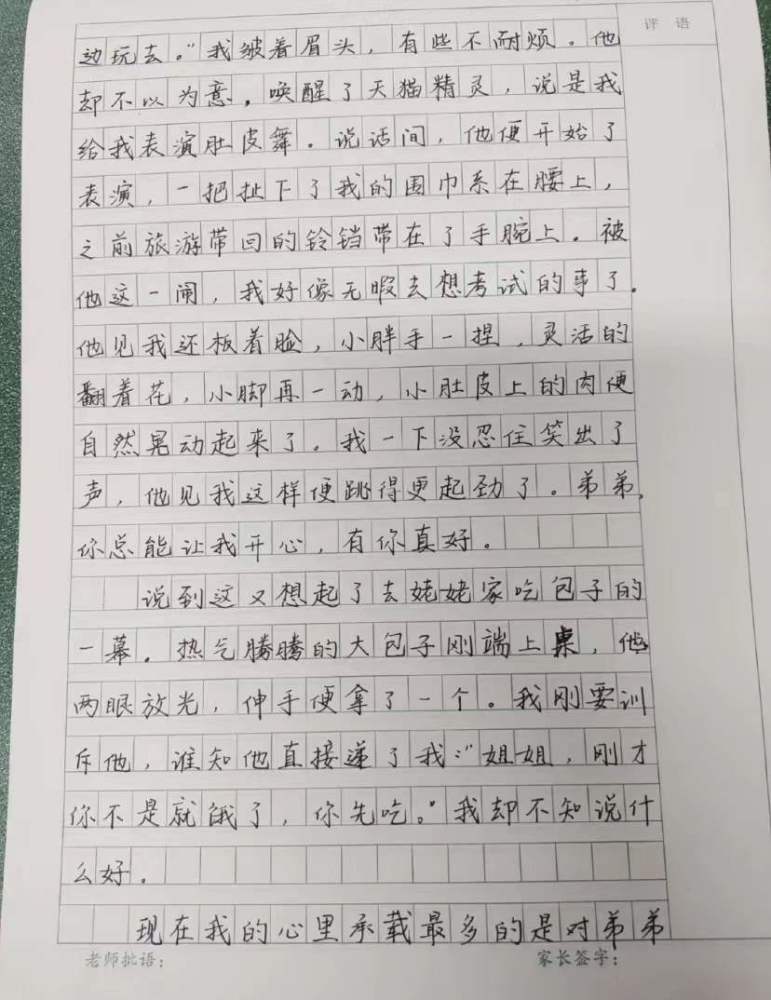 评语
边玩去。”我皱着眉头，有些不耐烦。他
却不以为意，唤醒了天猫精灵，说是我
给我表演肚皮舞。说话间，他便开始了
表演，一把扯下了我的围巾系在腰上，
之前旅游带回的铃铛带在了手腕上。被
他这一闹，我好像无暇去想考试的事了。
他见我还板着脸，小胖手一捏，灵活的
翻着花，小脚再一动，小肚皮上的肉便
自然晃动起来了。我一下没忍住笑出了
声，他见我这样便跳得更起劲了。弟弟，
你总能让我开心，有你真好。
说到这又想起了去姥姥家吃包子的
一幕。热气腾腾的大包子刚端上桌，他
两眼放光，伸手便拿了一个。我刚要训
斥他，谁知他直接递了我：“姐姐，刚才
你不是就饿了，你先吃。”我却不知说什
么好。
现在我的心里承载最多的是对弟弟
老师批语： 家长签字：